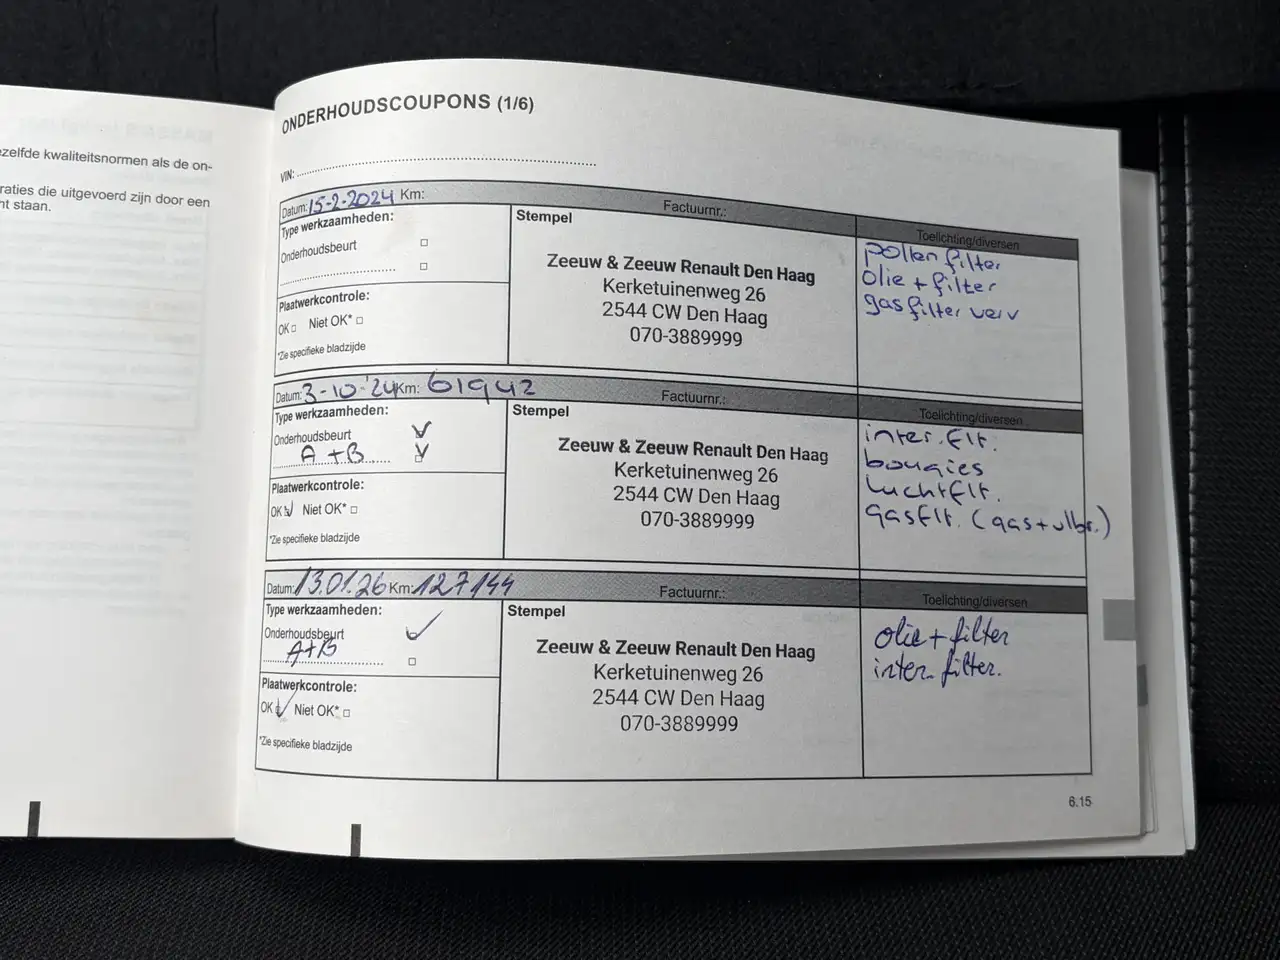 ezelfde kwaliteitsnormen als de on-
raties die uitgevoerd zijn door een
nt staan.
ONDERHOUDSCOUPONS (1/6)
VIN:
Datum: 15-2-2024 Km:
Factuurnr.:
Type werkzaamheden:
Onderhoudsbeurt
Plaatwerkcontrole:
OK Niet OK*
*Zie specifieke bladzijde
Stempel
Zeeuw & Zeeuw Renault Den Haag
Kerketuinenweg 26
2544 CW Den Haag
070-3889999
Toelichting/diversen
pollen filter
olie + filter
gasfilter verv
Datum: 3-10-'24 Km: 61942
Factuurnr.:
Type werkzaamheden:
Onderhoudsbeurt
A+B
Plaatwerkcontrole:
OK Niet OK*
*Zie specifieke bladzijde
Stempel
Zeeuw & Zeeuw Renault Den Haag
Kerketuinenweg 26
2544 CW Den Haag
070-3889999
Toelichting/diversen
inter.flt.
bougies
luchtflt.
gasflt. (gas+vlbr.)
Datum: 13.01.26 Km: 127144
Factuurnr.:
Type werkzaamheden:
Onderhoudsbeurt
A+B
Plaatwerkcontrole:
OK Niet OK*
*Zie specifieke bladzijde
Stempel
Zeeuw & Zeeuw Renault Den Haag
Kerketuinenweg 26
2544 CW Den Haag
070-3889999
Toelichting/diversen
olie + filter
inter. filter.
6.15